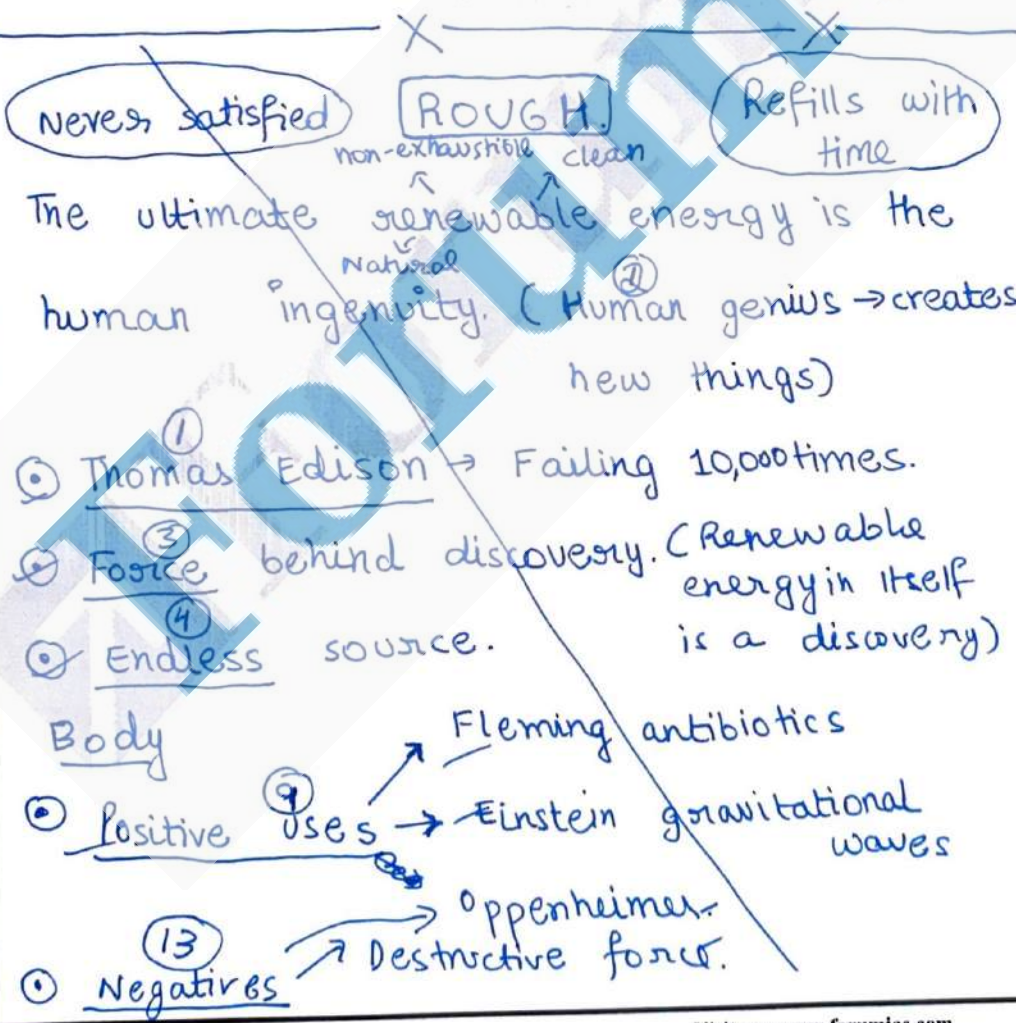 Never satisfied
ROUGH.
Refills with
time
non-exhaustible clean
The ultimate renewable energy is the
Natural
②
human ingenuity. (Human genius → creates
new things)
①
Thomas Edison → Failing 10,000 times.
③
Force behind discovery. (Renewable
energy in itself
is a discovery)
④
Endless source.
Body
Fleming antibiotics
⑨
Positive Uses → Einstein gravitational
waves
Oppenheimer
⑬
Destructive force.
Negatives
Forum